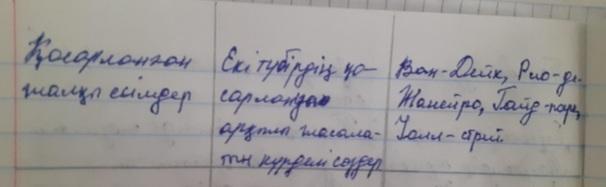 Қосарланған
жалқы есімдер
Екі түбірдің қо-
сарлануы
арқылы жасала-
тын күрделі сөздер
Ван-Дейк, Рио-де-
Жанейро, Гайд-парк,
Уолл-стрит